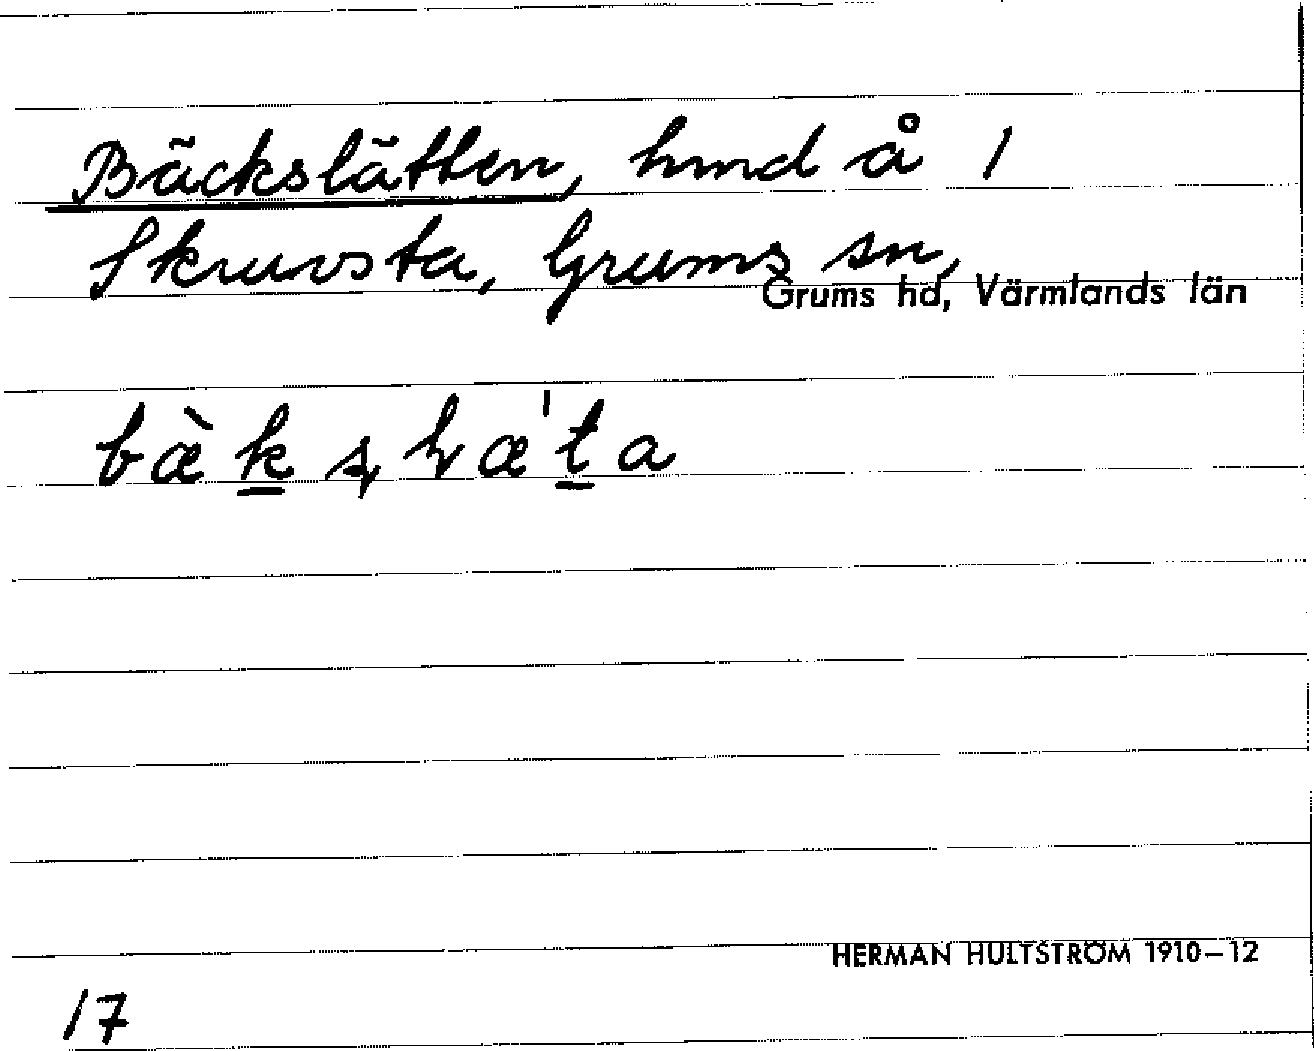 Bäckslätten, hmd å 1
Skruvsta, Grums sn,
Grums hd, Värmlands län
bæ̀k̲
HERMAN HULTSTRÖM 1910–12
17